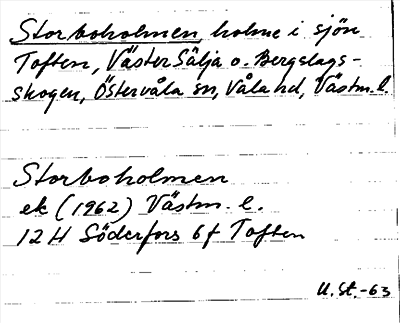 Storboholmen, holme i sjön
Toften, Väster Sälja o. Bergslags-
skogen, Östervåla sn, Våla hd, Västm. l.
Storboholmen
ek (1962) Västm. l.
12 H Söderfors 6f Toften
U. St. -63